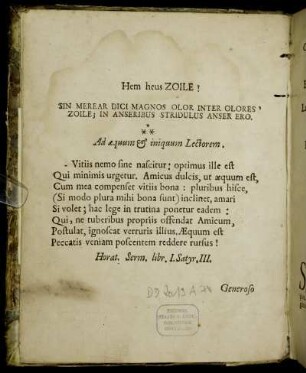 Hem heus ZOILE!
SIN MEREAR DICI MAGNOS OLOR INTER OLORES,
ZOILE; IN ANSERIBUS STRIDULUS ANSER ERO.
*
**
Ad æquum & iniquum Lectorem.
- Vitiis nemo sine nascitur; optimus ille est
Qui minimis urgetur. Amicus dulcis, ut æquum est,
Cum mea compenset vitiis bona: pluribus hisce,
(Si modo plura mihi bona sunt) inclinet, amari
Si volet; hac lege in trutina ponetur eadem:
Qui, ne tuberibus propriis offendat Amicum,
Postulat, ignoscat verrucis illius. Æquum est
Peccatis veniam poscentem reddere rursus!
Horat. Serm. libr. I. Satyr. III.
Generoso